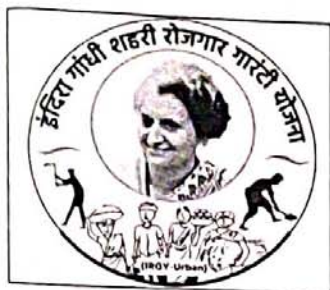 इंदिरा गांधी शहरी रोजगार गारंटी योजना
(IRGY-Urban)